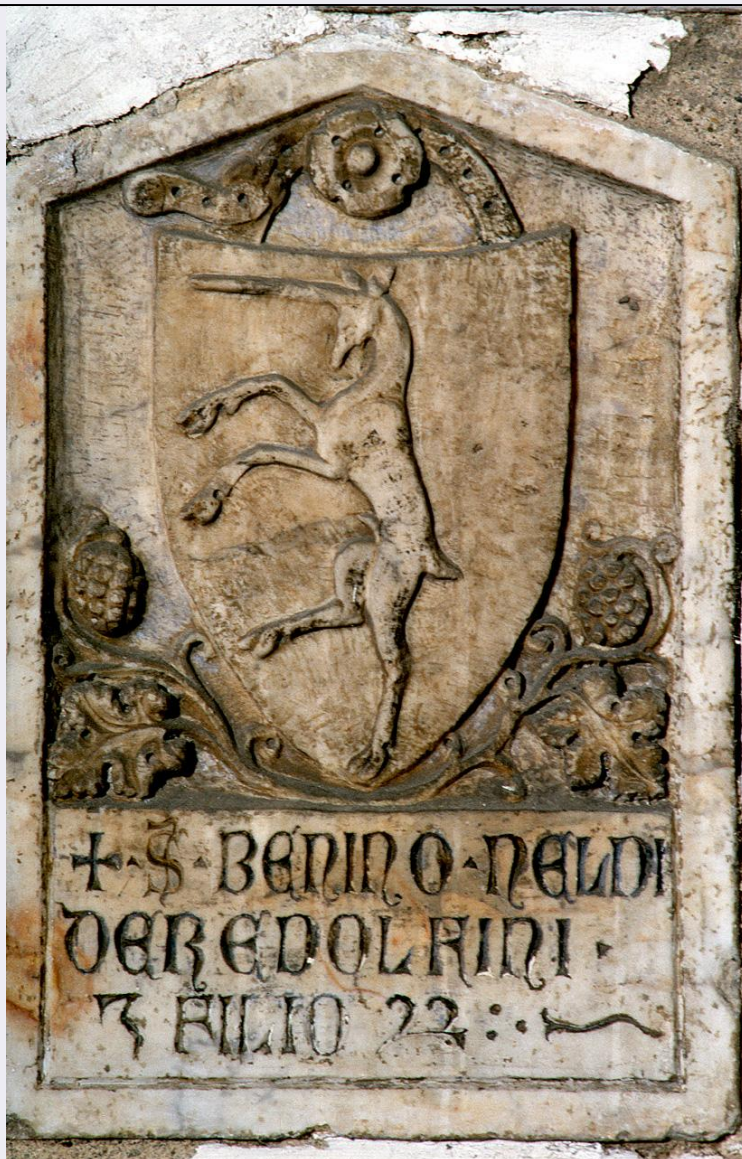 + · S · BENINO · NELDI
DEREDOLFINI ·
⁊ FILIO 22 :·